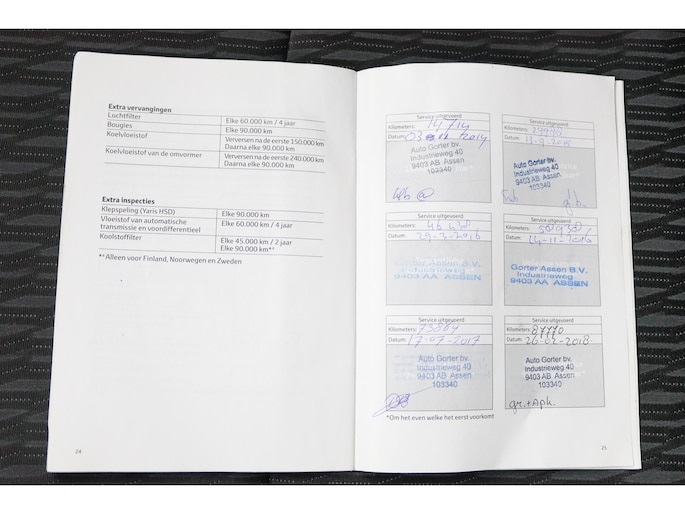 Extra vervangingen
Luchtfilter Elke 60.000 km / 4 jaar
Bougies Elke 90.000 km
Koelvloeistof Verversen na de eerste 150.000 km
Daarna elke 90.000 km
Koelvloeistof van de omvormer Verversen na de eerste 240.000 km
Daarna elke 90.000 km
Extra inspecties
Klepspeling (Yaris HSD) Elke 90.000 km
Vloeistof van automatische Elke 60.000 km / 4 jaar
transmissie en voordifferentieel
Koolstoffilter Elke 45.000 km / 2 jaar
Elke 90.000 km*¹
*¹ Alleen voor Finland, Noorwegen en Zweden
24
Service uitgevoerd
Kilometers:
Datum: 2014
Auto Gorter bv.
Industrieweg 40
9403 AB Assen
103340
Service uitgevoerd
Kilometers:
Datum:
Auto Gorter bv.
Industrieweg 40
9403 AB Assen
103340
Service uitgevoerd
Kilometers:
Datum: 29-3-2016
Gorter Assen B.V.
Industrieweg
9403 AA ASSEN
Service uitgevoerd
Kilometers:
Datum: 14-11-2016
Gorter Assen B.V.
Industrieweg
9403 AA ASSEN
Service uitgevoerd
Kilometers: 73864
Datum: 17-07-2017
Auto Gorter bv.
Industrieweg 40
9403 AB Assen
103340
Service uitgevoerd
Kilometers: 87770
Datum: 26-02-2018
Auto Gorter bv.
Industrieweg 40
9403 AB Assen
103340
gr.+Apk.
*Om het even welke het eerst voorkomt
25